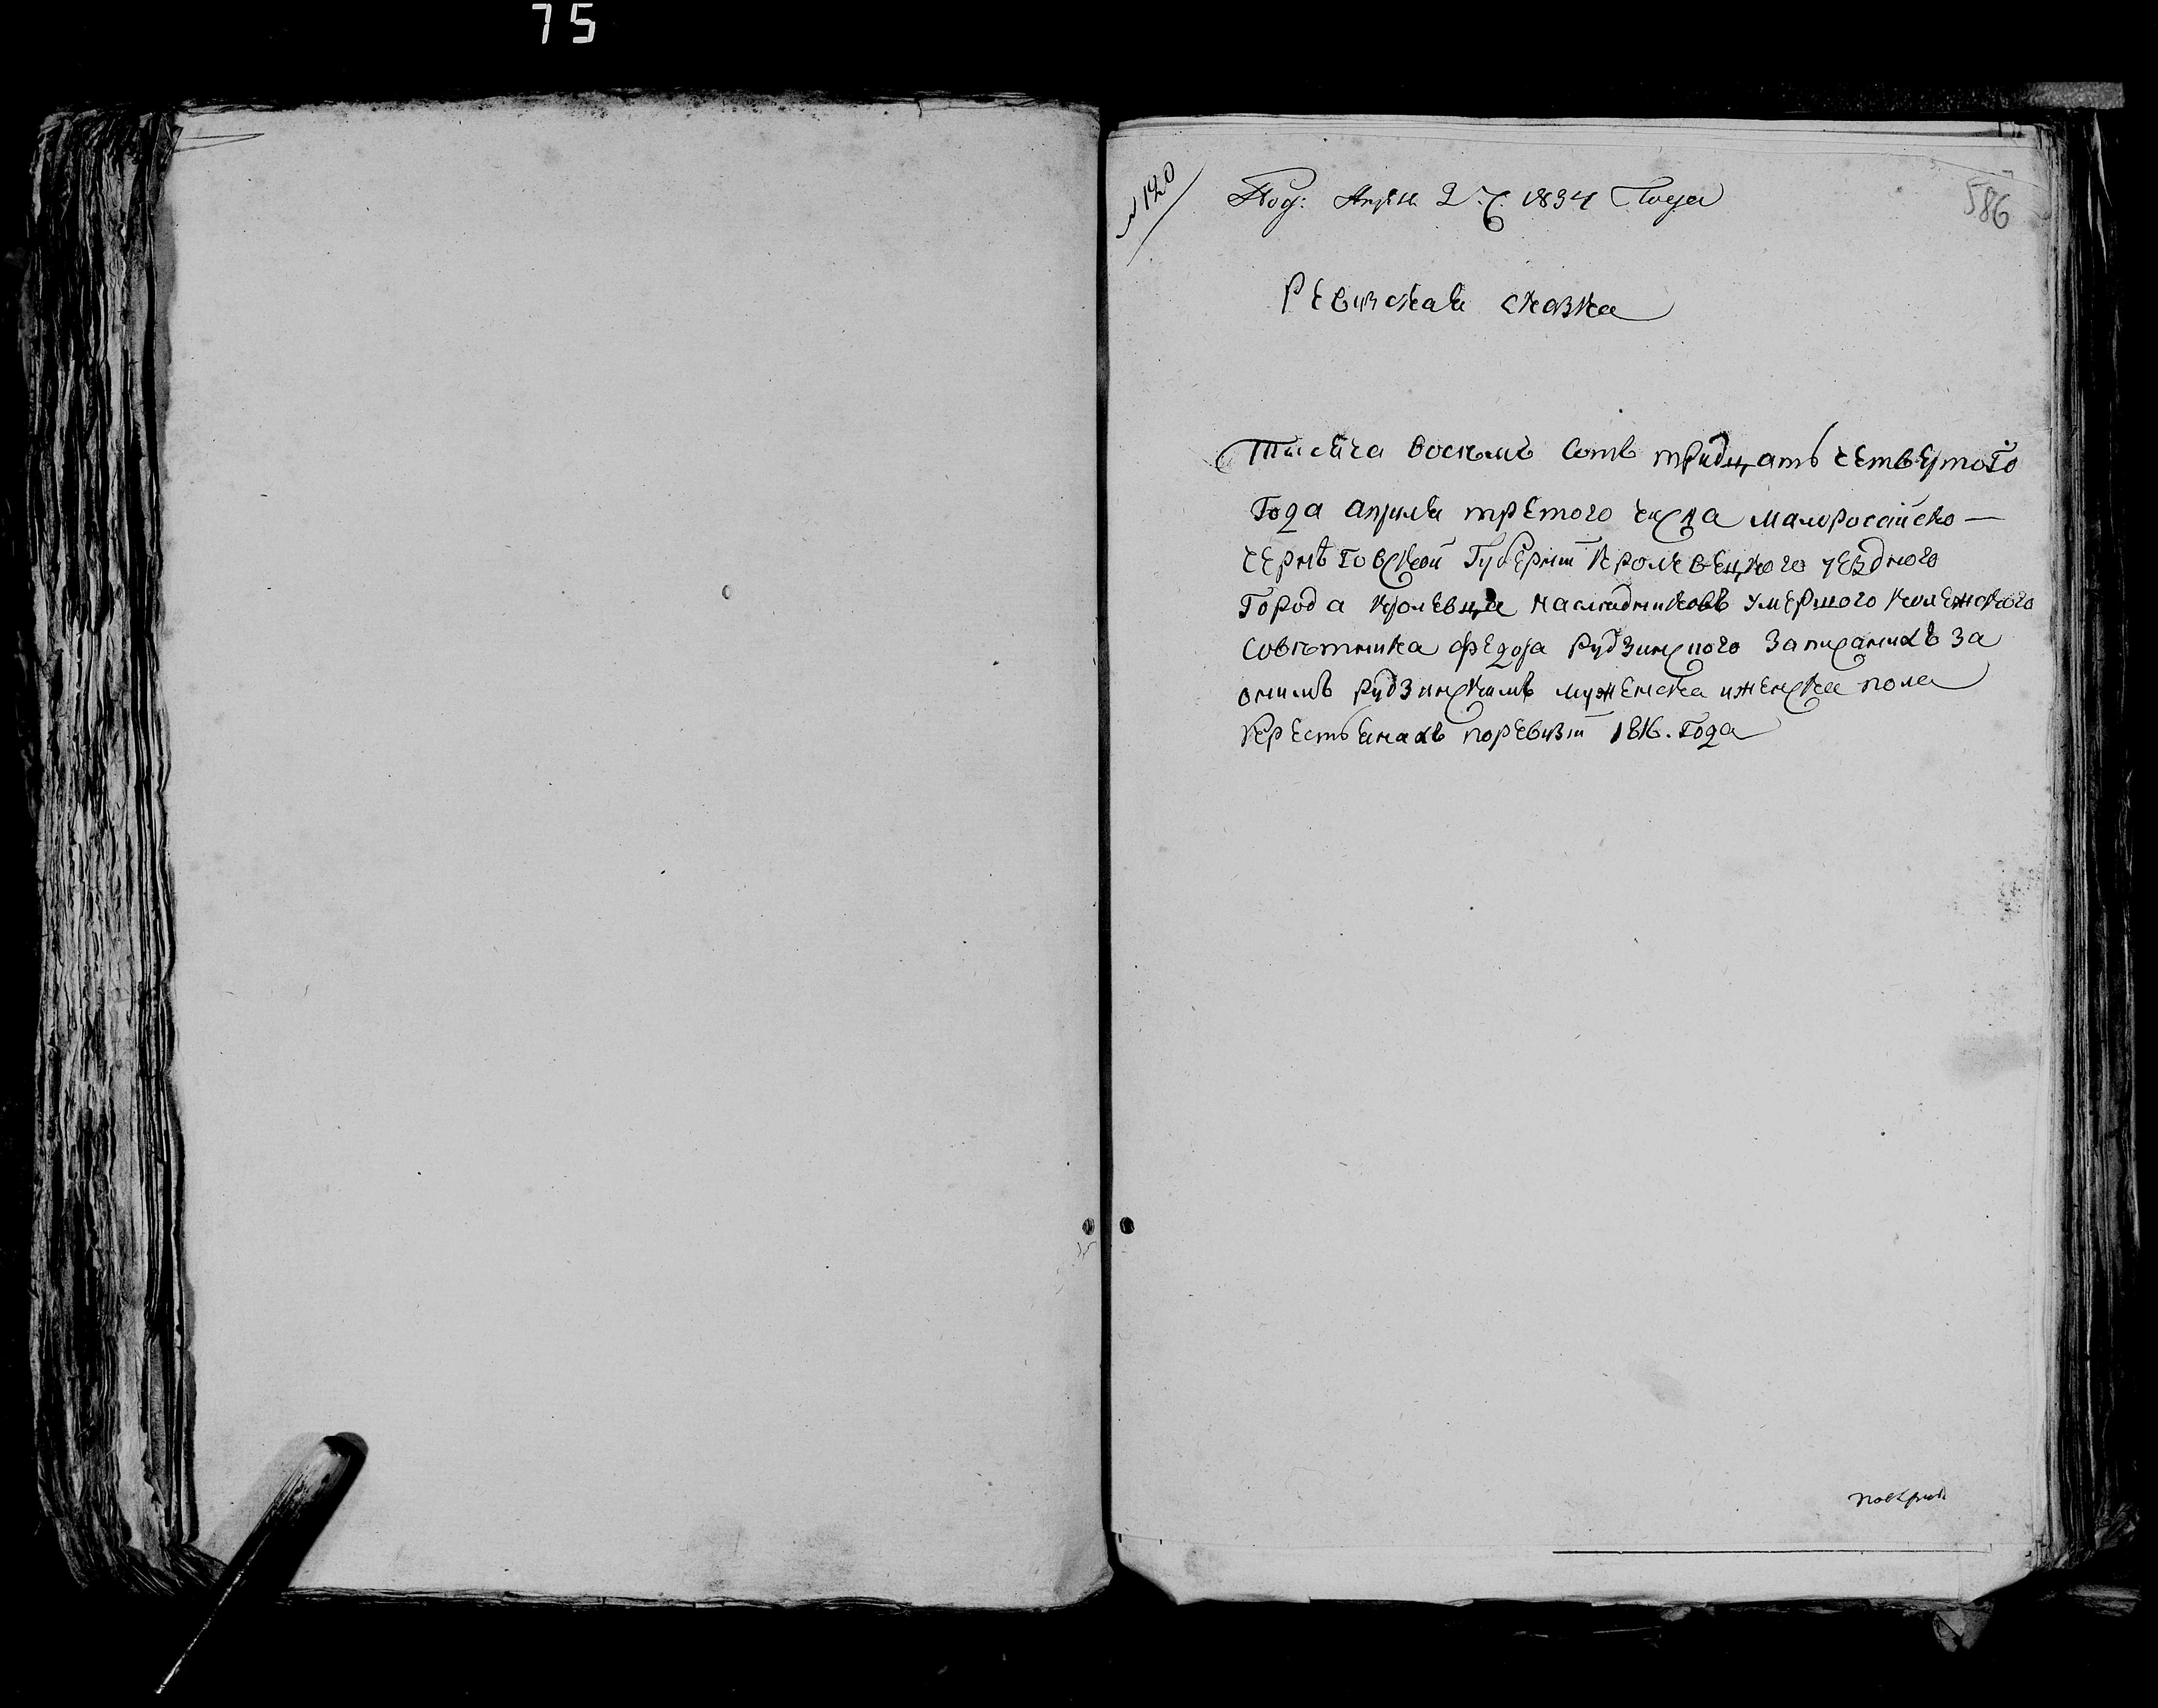 75
№ 120
Под: Апреля 2 ч. 1834 Года
586
Ревизская сказка
Тысяча восемь сотъ тридцать четвертого
Года апреля третого числа Малоросийско —
Чернѣговской Губернии Кролевецкого уездного
Города Кролевца наследниковъ умершого колежского
Советника Федора Рудзинского записаннихъ за
онимъ Рудзинскимъ мужеска и женска пола
крестьянахъ по ревизии 1816. Года